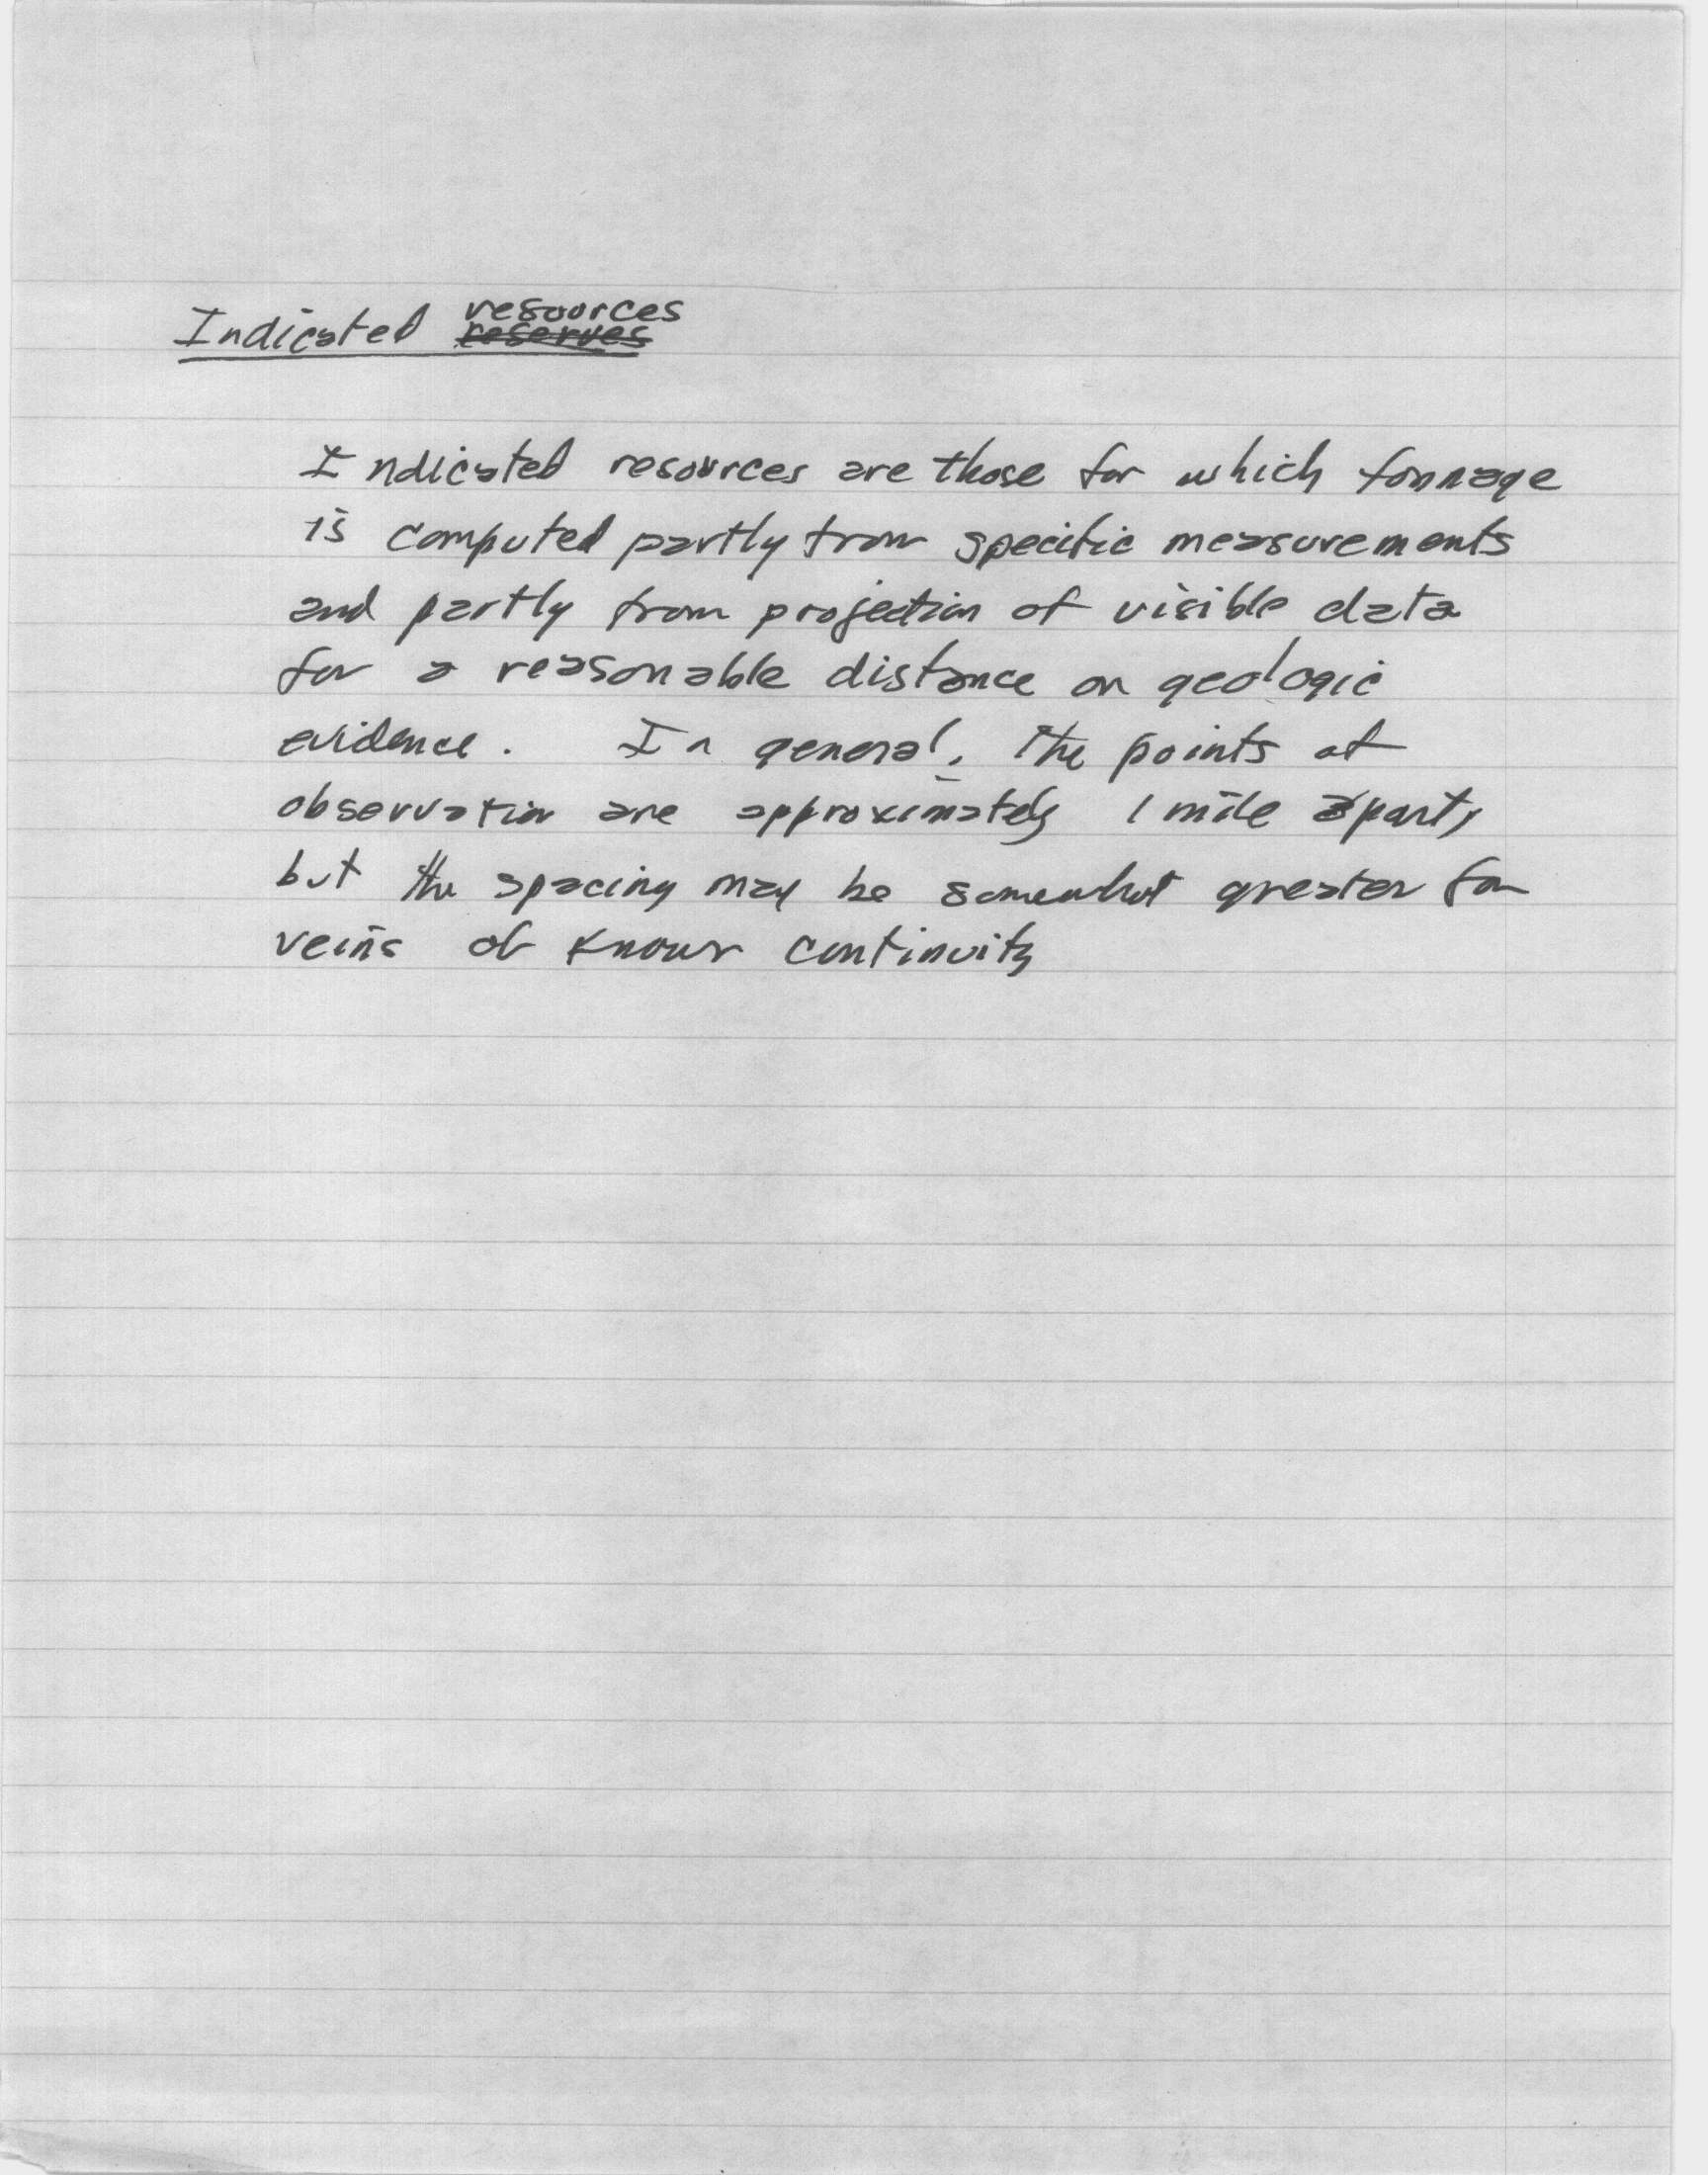 Indicated resources
reserves
Indicated resources are those for which tonnage
is computed partly from specific measurements
and partly from projection of visible data
for a reasonable distance on geologic
evidence. In general, the points of
observation are approximately 1 mile apart,
but the spacing may be somewhat greater for
veins of known continuity